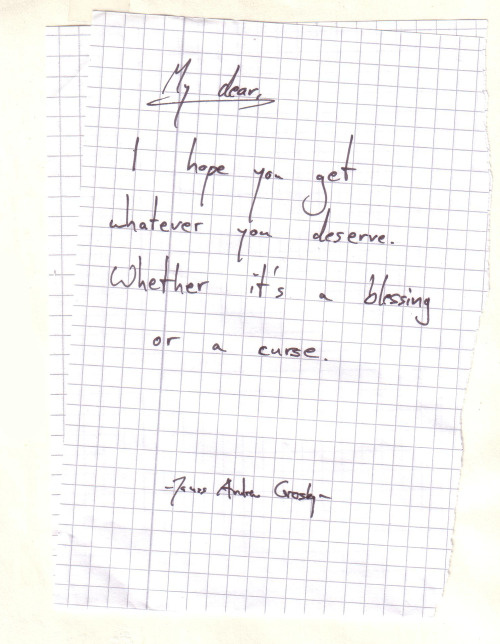 My dear,
I hope you get
whatever you deserve.
Whether it's a blessing
or a curse.
- James Andrew Crosby -